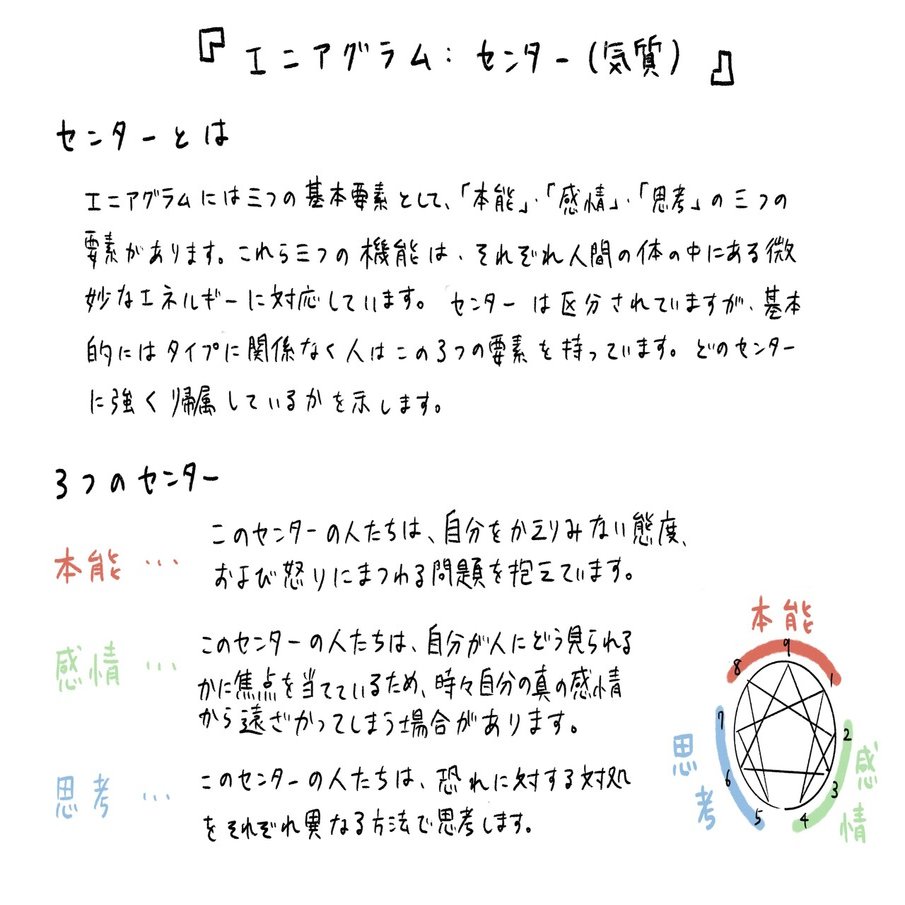 『エニアグラム：センター（気質）』
センターとは
エニアグラムには三つの基本要素として、「本能」・「感情」・「思考」の三つの
要素があります。これら三つの機能は、それぞれ人間の体の中にある微
妙なエネルギーに対応しています。センターは区分されていますが、基本
的にはタイプに関係なく人はこの3つの要素を持っています。どのセンター
に強く帰属しているかを示します。
3つのセンター
本能…
このセンターの人たちは、自分をかえりみない態度、
および怒りにまつわる問題を抱えています。
感情…
このセンターの人たちは、自分が人にどう見られる
かに焦点を当てているため、時々自分の真の感情
から遠ざかってしまう場合があります。
思考…
このセンターの人たちは、恐れに対する対処
をそれぞれ異なる方法で思考します。
本能
9
8
1
7
2
思考
感情
6
3
5
4